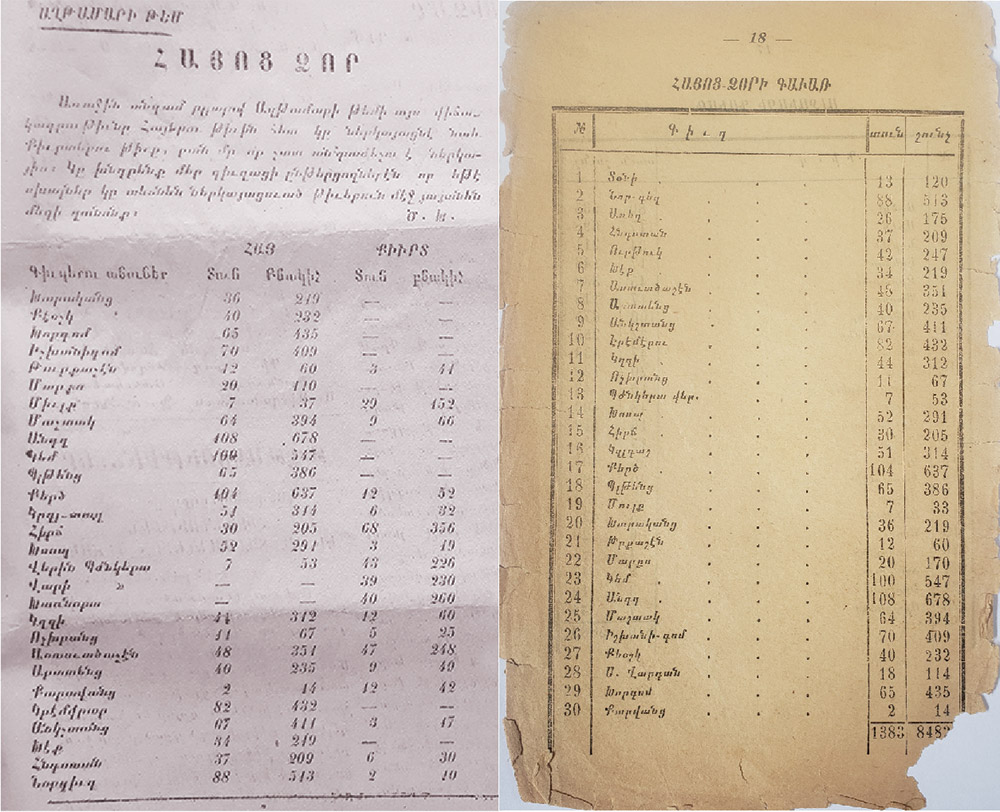 ԱՂԹԱՄԱՐԻ ԹԵՄ
ՀԱՅՈՑ ՁՈՐ
Առաջին անգամ ըլլալով Աղթամարի թեմի այս վիճա-
կագրութիւնը Հայերու թիւին հետ կը ներկայացնէ նաեւ
Քիւրտերու թիւը, բան մը որ շատ անհրաժեշտ է ներկա-
յիս։ Կը խնդրենք մեր գիւղացի ընթերցողներէն որ եթէ
սխալներ կը տեսնեն ներկայացուած թիւերուն մէջ յայտնեն
մեզի զանոնք։
ՀԱՅ ՔԻՒՐՏ
Գիւղերու անուններ Տուն Բնակիչ Տուն բնակիչ
Խարականց 36 219 — —
Քէօշկ 40 232 — —
Խորգոմ 65 435 — —
Իշխանիգոմ 70 409 — —
12 60 3 41
Մարքս 20 110 — —
Միւլք 7 37 29 152
Մաշտակ 64 394 9 66
Անգղ 108 678 — —
Կեմ 100 547 — —
Պլթենց 65 386 — —
Բերծ 104 637 12 52
51 314 6 32
Հիրճ 30 205 68 356
Խոսպ 52 291 3 19
Վերին Պժնկերտ 7 53 43 226
Վարի » — — 39 230
— — 40 260
Կղզի 44 312 12 60
Ոչխրանց 11 67 5 25
Աստուածաշէն 48 351 47 248
Արատենց 40 235 9 49
2 14 12 42
82 432 — —
Անկշտանց 67 411 3 17
Խէք 34 219 — —
Հնդստան 37 209 6 30
Նորգիւղ 88 513 2 10
— 18 —
ՀԱՅՈՑ-ՁՈՐԻ ԳԱՒԱՌ
№ Գիւղ տուն շունչ
1 Տօնի 13 120
2 Նոր-գեղ 88 513
3 Աստղ 26 175
4 Հնդստան 37 209
5 42 247
6 Խէք 34 219
7 Աստուածաշէն 48 351
8 40 235
9 Անկշտանց 67 411
10 Երէմէրու 82 432
11 Կղզի 44 312
12 Ոչխրանց 11 67
13 Պժնկերտ վեր. 7 53
14 Խոսպ 52 291
15 Հիրճ 30 205
16 51 314
17 Բերծ 104 637
18 Պլթենց 65 386
19 Մուլք 7 33
20 Խարականց 36 219
21 12 60
22 Մարքս 20 170
23 Կեմ 100 547
24 Անգղ 108 678
25 Մաշտակ 64 394
26 Իշխանի-գոմ 70 409
27 Քեօշկ 40 232
28 Ս. Վարդան 18 114
29 Խորգոմ 65 435
30 2 14
1383 8482